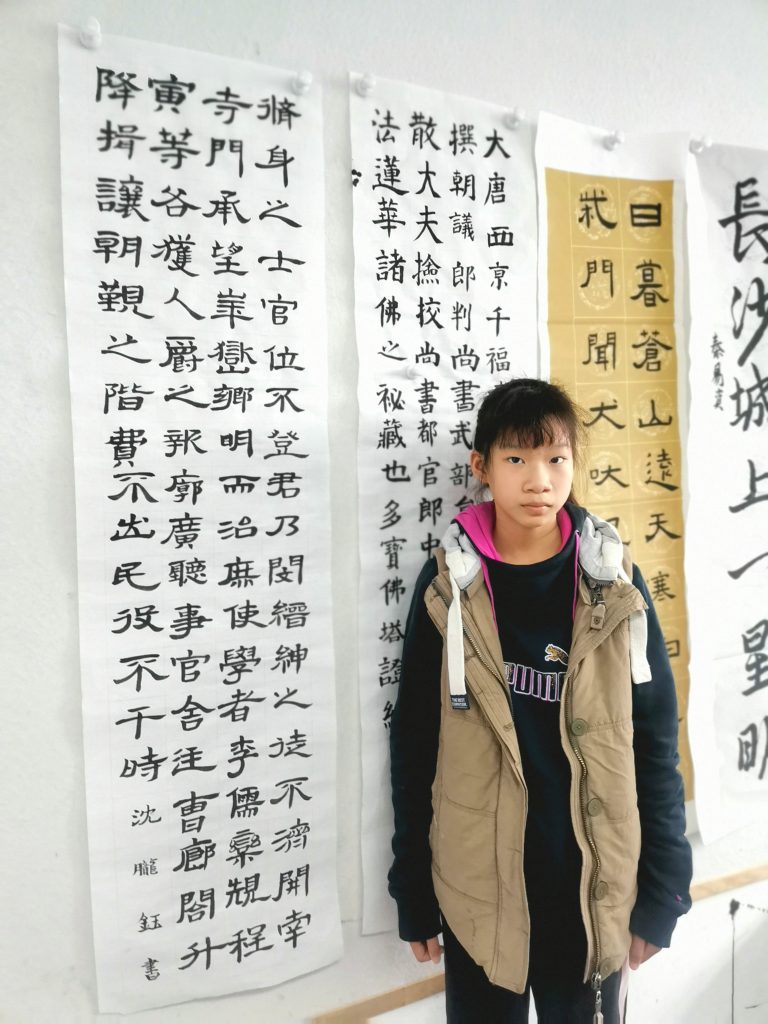 脩身之士官位不登君乃閔縉紳之徒不濟開南
寺門承望華嶽鄉明而治庶使學者李儒欒規程
寅等各獲人爵之報廓廣聽事官舍廷曹廊閣升
降揖讓朝覲之階費不出民役不干時
沈朧鈺書
大唐西京千福
撰朝議郎判尚書武部
散大夫撿挍尚書都官郎中
法蓮華諸佛之祕藏也多寶佛塔證經
日暮蒼山遠天寒白
柴門聞犬吠
長沙城上一星明
PUM